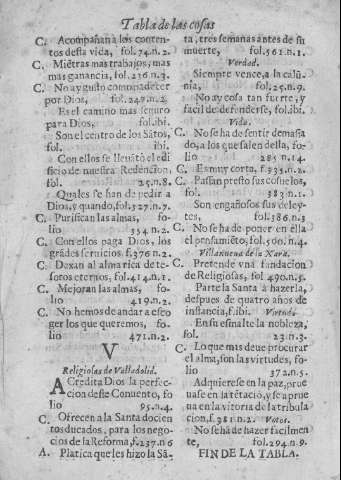 Tabla de las cosas
C. Acompañan a los conten-
tos desta vida, fol.74.n.2.
C. Miẽtras mas trabajos, mas
mas ganancia, fol.236.n.3.
C. No ay gusto como padecer
por Dios, fol.247.n.2.
Es el camino mas seguro
para Dios, fol.ibi.
Son el centro de los Sãtos,
fol. ibi.
Con ellos se lleuatò el edi
ficio de nuestra Redencion,
fol. 25.n.8.
Quales se han de pedir a
Dios, y quando, fol.327.n.7.
C. Purifican las almas, fo-
lio 354.n.2.
C. Con ellos paga Dios, los
grãdes seruicios, f.376.n.2.
C. Dexan al alma rica de te-
soros eternos, fol.414.n.1.
C. Mejoran las almas, fo-
lio 419.n.2.
C. No hemos de andar a esco
ger los que queremos, fo-
lio 471.n.2.
V
Religiosas de Valladolid.
ACredita Dios la perfec-
cion deste Conuento, fo
lio 95.n.4.
C. Ofrecen a la Santa docien
tos ducados, para los nego-
cios de la Reforma, f.237.n6
A. Platica que les hizo la Sã-
ta, tres semanas antes de su
muerte, fol.561.n.1.
Verdad.
Siempre vence, a la calũ-
nia, fol.25.n.9.
No ay cosa tan fuerte, y
facil de defenderse, fol.ibi.
Vida.
C. No se ha de sentir demasia
do, a los que salen della, fo-
lio 285 n.14.
C. Es muy corta, f.335.n.2.
C. Passan presto sus cõsuelos,
fol. 383.n.1.
C. Son engañosos sus deley-
tes, fol.386.n.3
C. No se ha de poner en ella
el pensamiẽto, fol.506.n.4.
Villanueua de la Xara.
C. Pretende vna fundacion
de Religiosas, fol 490.n.5.
Parte la Santa a hazerla,
despues de quatro años de
instancia, f.ibi. Virtud.
En su esmalte la nobleza,
fol. 23.n.3.
C. Lo que mas deue procurar
el alma, son las virtudes, fo-
lio 372.n.5.
Adquierese en la paz, prue
uase en la tẽtaciõ, y se aprue
ua en la vitoria de la tribula
cion, f.381.n.2. Votos.
No se ha de hazer facilmen
te, fol.294.n.9.
FIN DE LA TABLA.